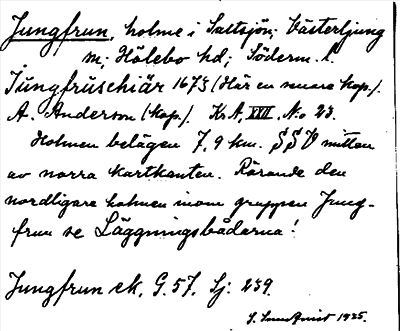 Jungfrun, holme i Saltsjön; Västerljung
sn; Hölebo hd; Söderm. l.
Jungfrŭschiär 1673 (Här en senare kop.).
A. Anderson (kop.). K.A. XVII. No 23.
Holmen belägen 7,9 km. SSV mitten
av norra kartkanten. Rörande den
nordligare holmen inom gruppen Jung-
frun se Läggningsbådarna!
Jungfrun ek. G. 57. Sj: 259.
1925.